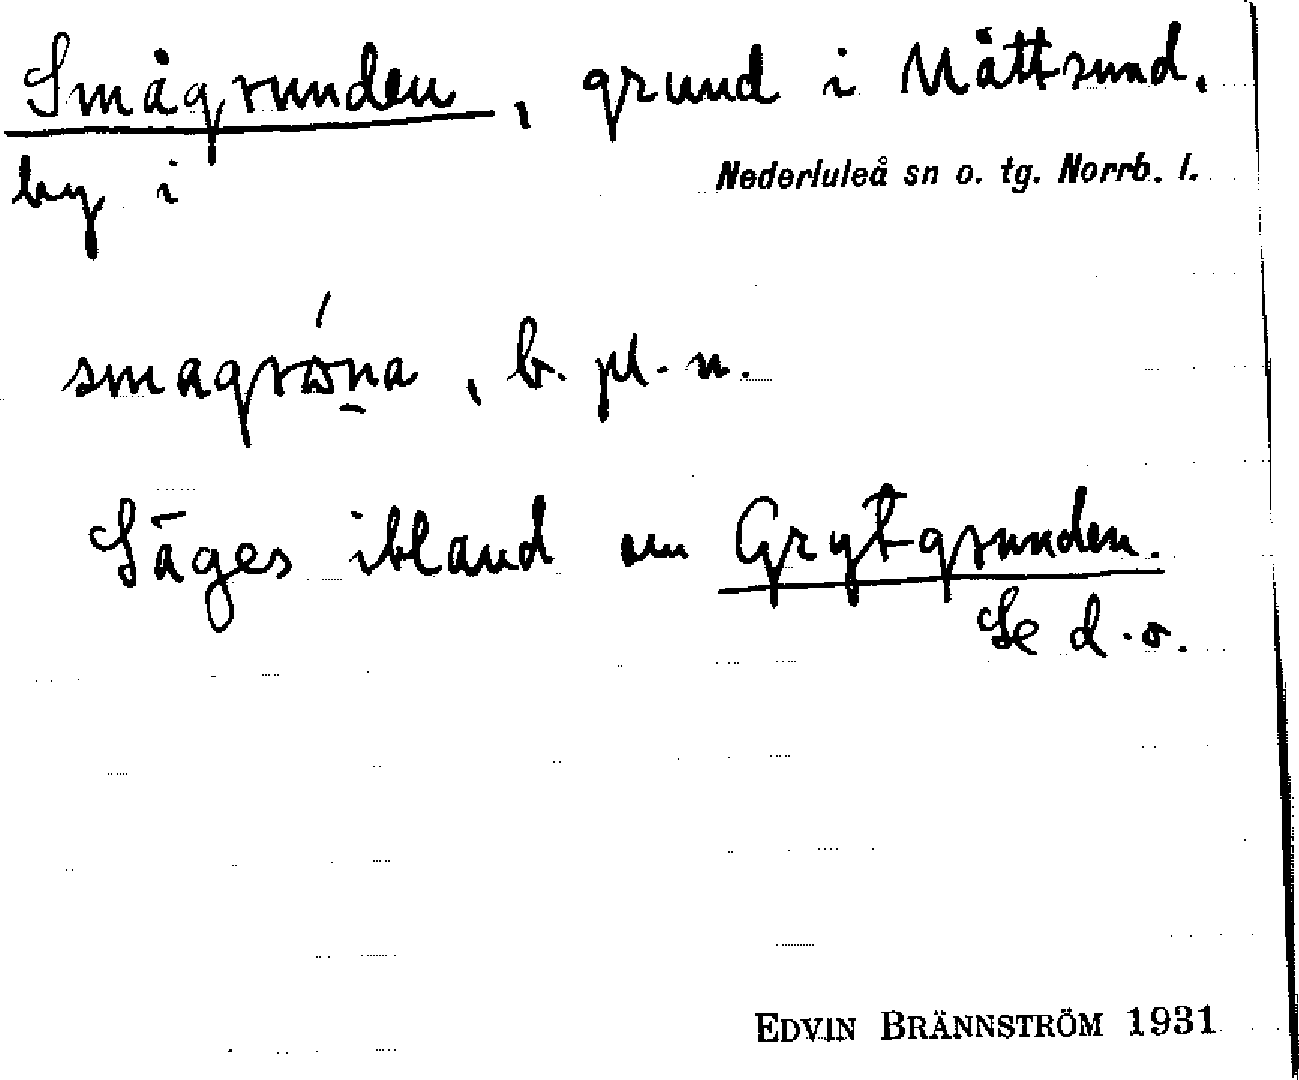 Smågrunden, grund i Måttsund,
by i Nederluleå sn o. tg. Norrb. l.
b. pl. n.
Säges ibland om Grytgrunden.
Se d.o.
EDVIN BRÄNNSTRÖM 1931